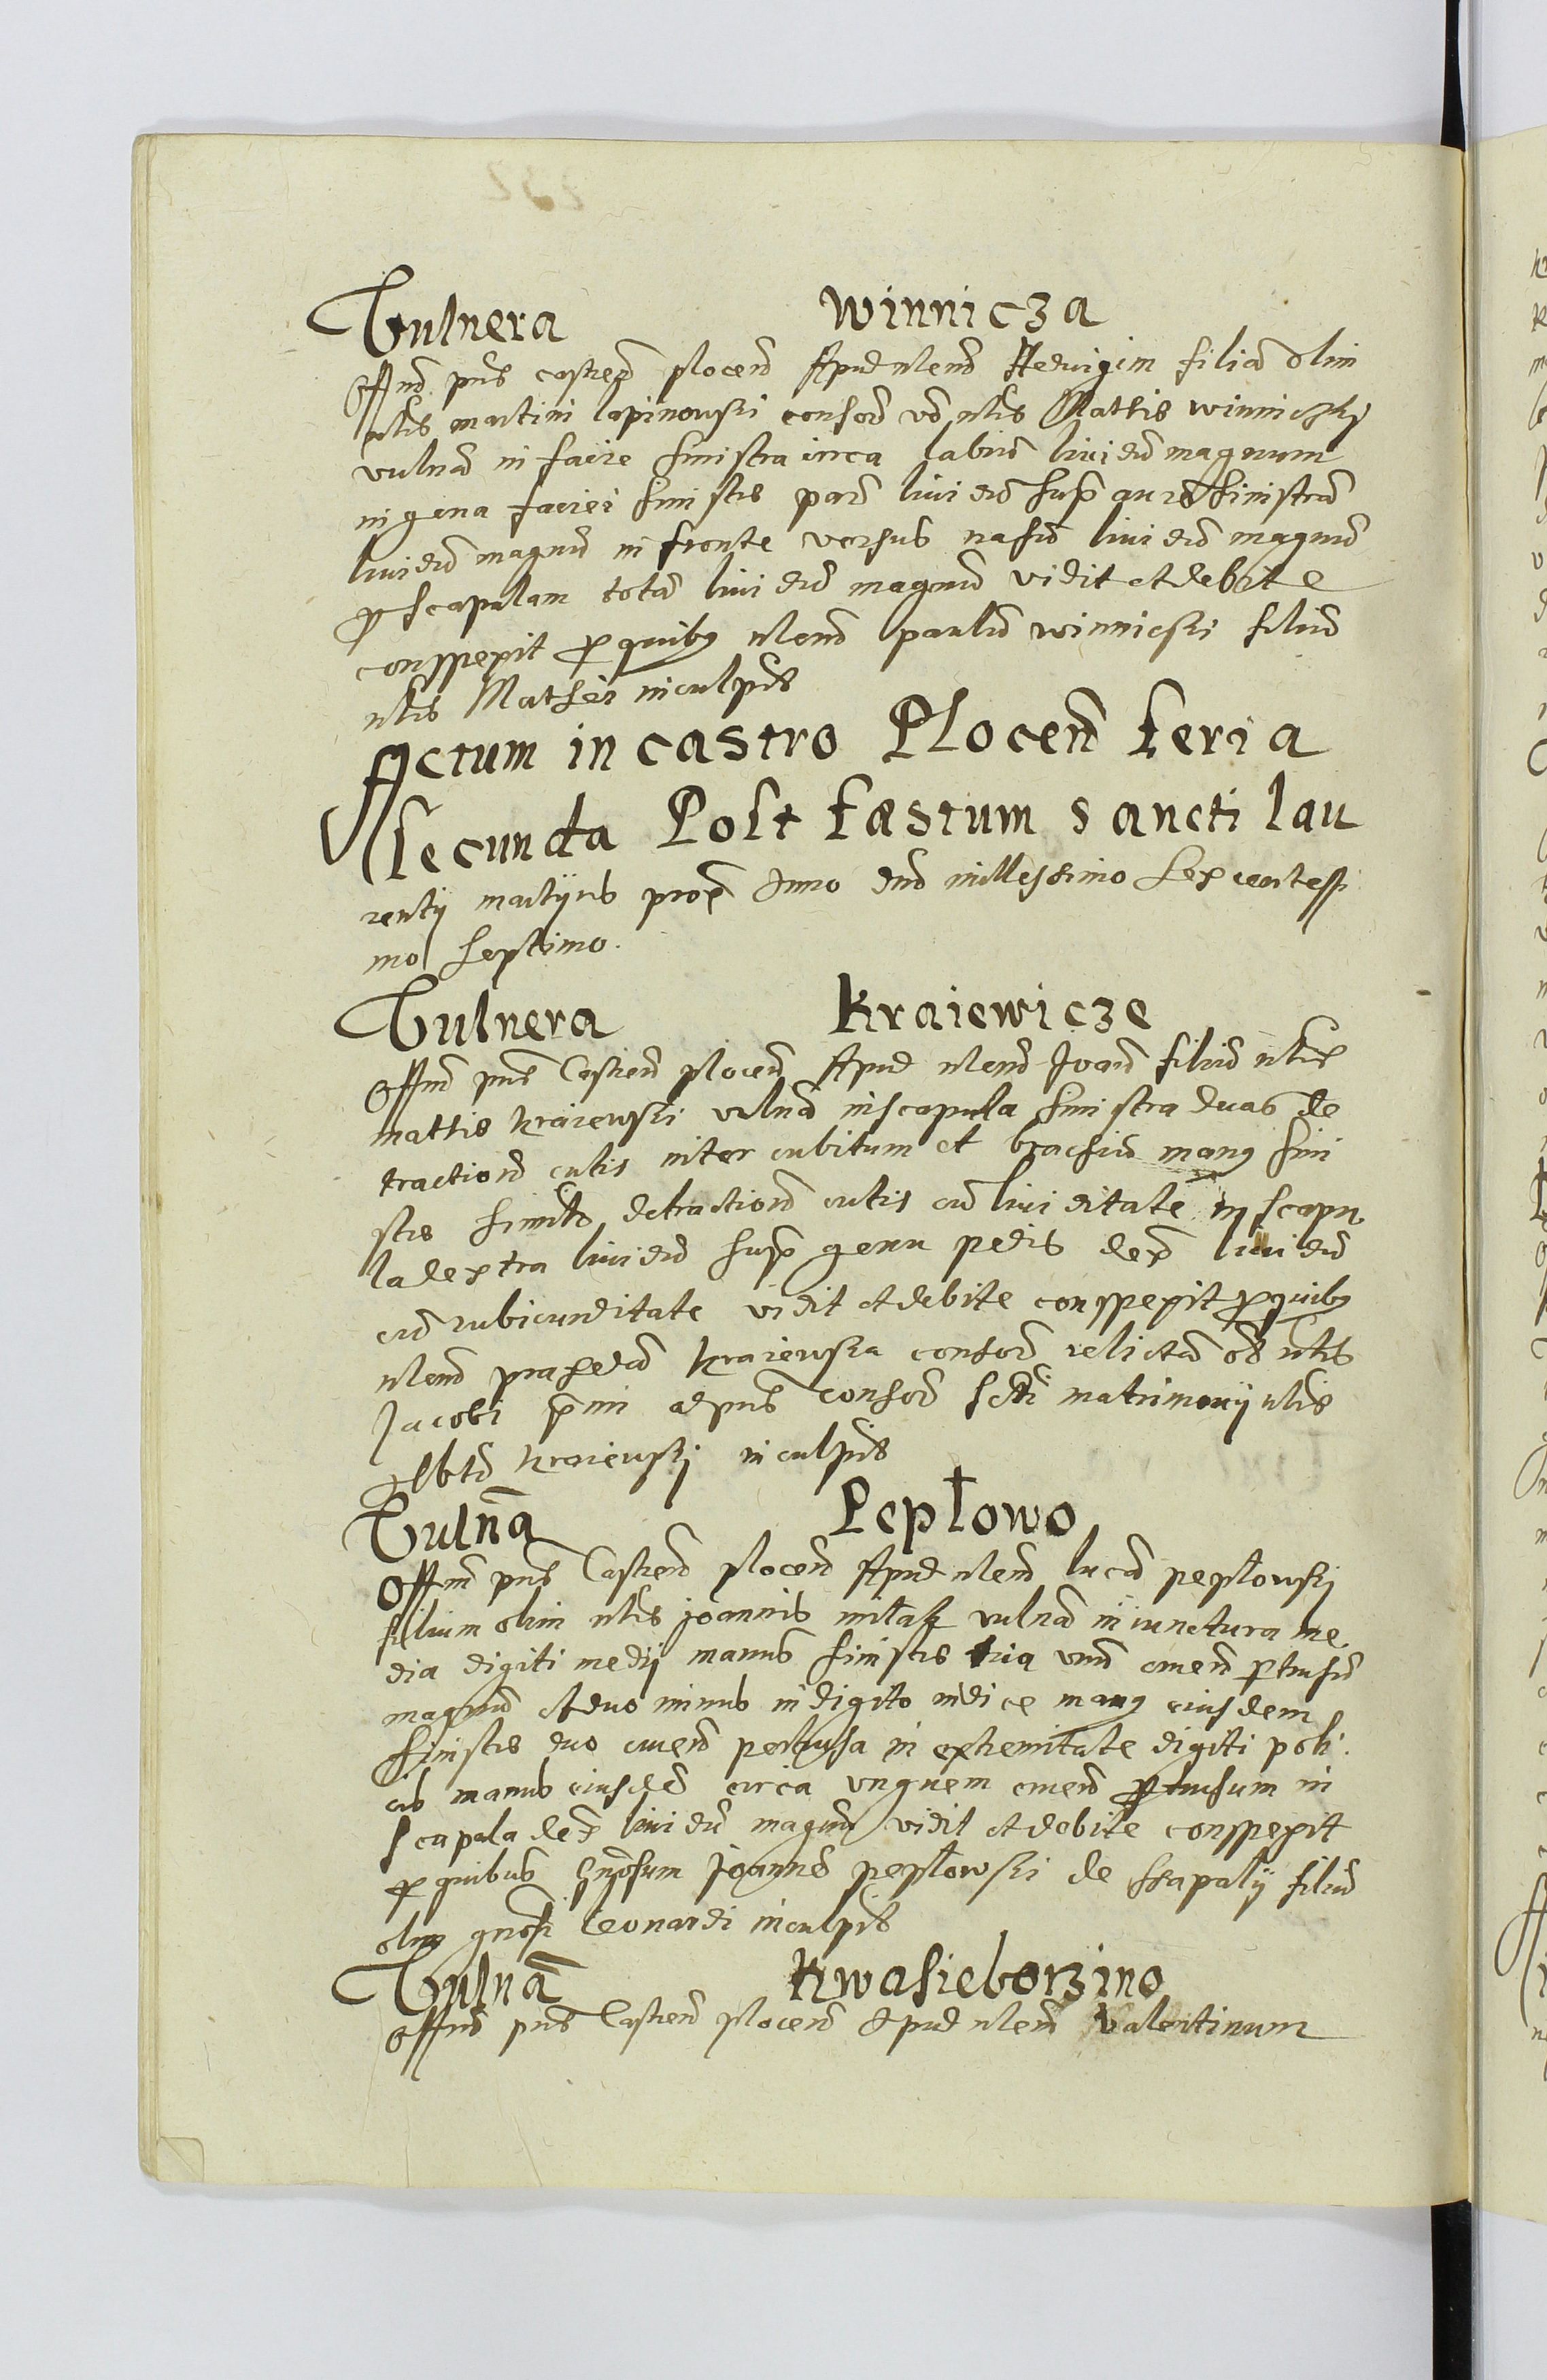 Vulnera Winnicza
Offnd pns castren plocen Apud nlem Hedvigim filiã olim
nlis martini lapinowski consor vo nlis Mattis winniczkÿ
vulnã in facie sinistra circa labiũ lividũ magnum
in gena faciei sinistrs parũ lividũ supr aurẽ sinistrã
lividũ magnũ in fronte versus nasũ lividũ magnũ
p scapulam totã lividũ magnũ vidit et debite
conspexit p quibus nlem paulũ winnicski filiũ
nlis Mathei inculpas
Actum in castro Plocen feria
secunda Post fæstum sancti lau
rentÿ martÿris prox Anno dnĩ millessimo sexcentessi
mo septimo.
Vulnera Kraiewicze
Offnd pns Castren plocen Apud nlem Joan filiũ nlis
mattis kraiewski vulnã in scapula sinistra duas de
traction cutis inter cubitum et brachiũ manus sini
strs similr detraction cutis cũ lividitate in scapu
la dextra lividũ supr genu pedis dex lividũ
cũ rubicunditate vidit et debite conspexit p quibus
nlem praxedã kraiewska consor relictã ol nlis
Jacobi pmi ac pns consor scdi matrimonÿ nlis
Albti kraiewskÿ inculpas
Vulnã Peplowo
Offm pns Castren plocen Apud nlem lucã peplowskÿ
filium olim nlis joannis vulnã in iunctura me
dia digiti medÿ manus sinistrs tria unũ cruen ptusũ
magnũ et duo minus in digito indice manus eiusdem
sinistrs duo cruen pertusa in extremitate digiti poli
cis manus eiusdẽ circa unguem cruen ptusum in
scapula dex lividũ magnũ vidit et debite conspexit
p quibus gnosum Joannẽ peplowski de filiũ
olim gnosi leonardi inculpas
Vulnã Kwasieborzino
Offnd pns Castren plocen Apud nlem Valentinum